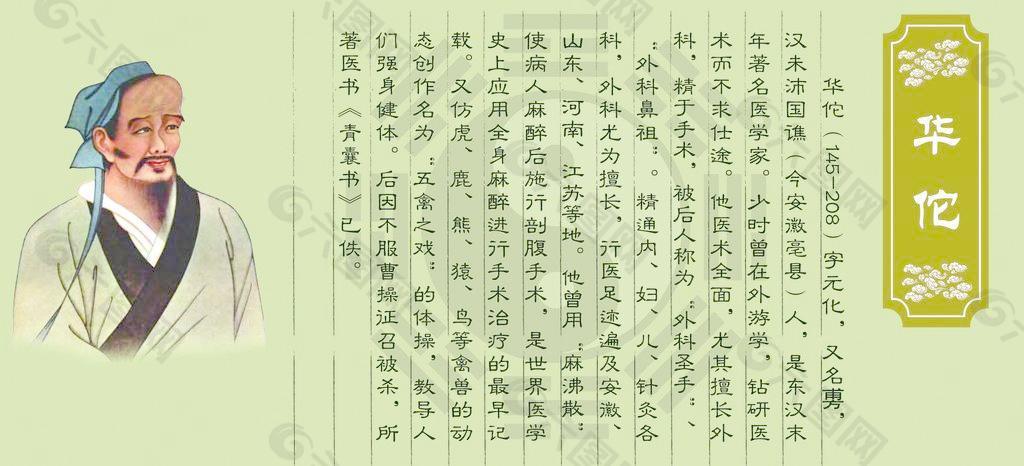 华佗
华佗（145-208）字元化，又名旉，
汉末沛国谯（今安徽亳县）人，是东汉末
年著名医学家。少时曾在外游学，钻研医
术而不求仕途。他医术全面，尤其擅长外
科，精于手术，被后人称为“外科圣手”、
“外科鼻祖”。精通内、妇、儿、针灸各
科，外科尤为擅长，行医足迹遍及安徽、
山东、河南、江苏等地。他曾用“麻沸散”
使病人麻醉后施行剖腹手术，是世界医学
史上应用全身麻醉进行手术治疗的最早记
载。又仿虎、鹿、熊、猿、鸟等禽兽的动
态创作名为“五禽之戏”的体操，教导人
们强身健体。后因不服曹操征召被杀，所
著医书《青囊书》已佚。
六图网